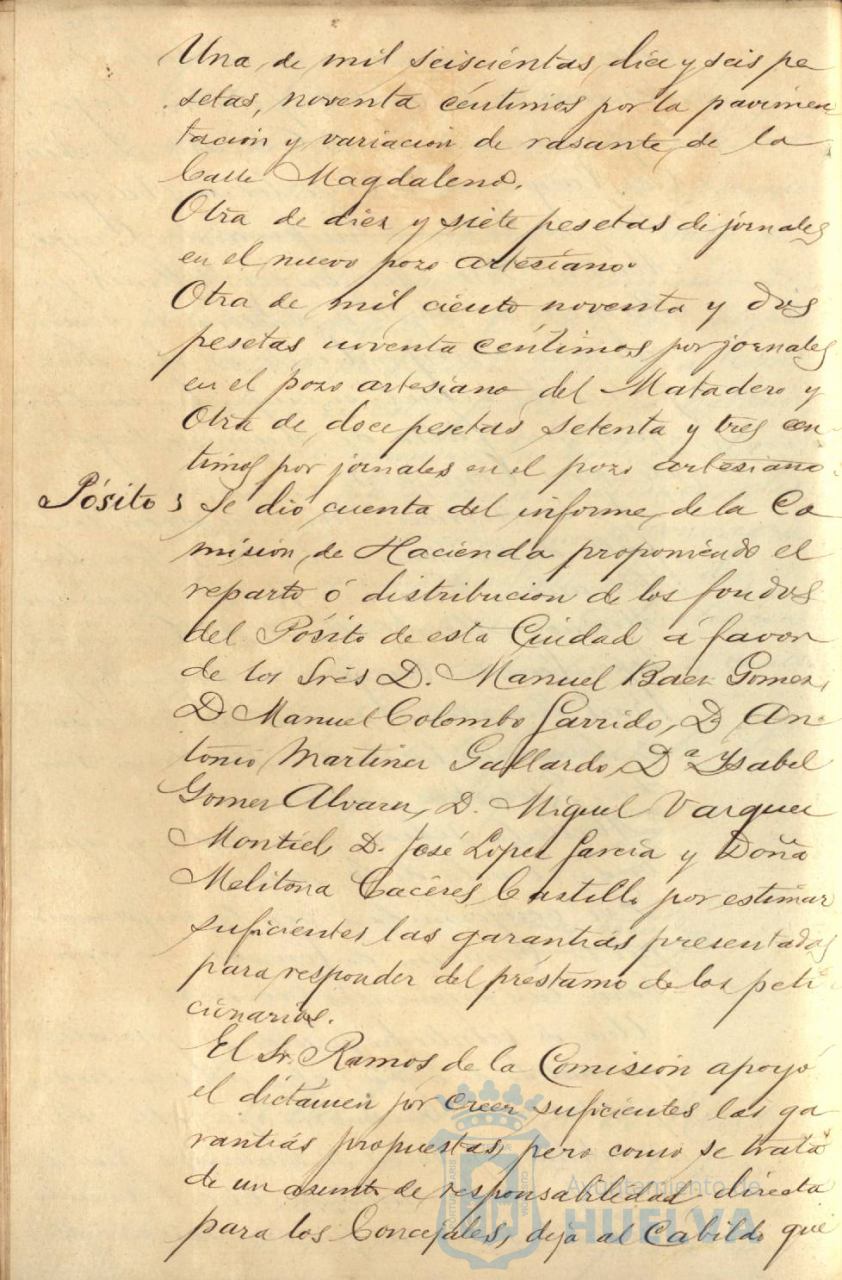 Una, de mil seiscientas, diez y seis pe
setas, noventa céntimos por la pavimen
tación y variación de rasante, de la
Calle Magdalena.
Otra de diez y siete pesetas de jornales
en el nuevo pozo artesiano.
Otra de mil ciento noventa y dos
pesetas noventa céntimos por jornales
en el pozo artesiano del Matadero y
Otra de doce pesetas setenta y tres cen
timos por jornales en el pozo artesiano.
Pósito Se dio cuenta del informe, de la Co
misión, de Hacienda proponiendo el
reparto ó distribucion de los fondos
del Pósito de esta Ciudad á favor
de los Sres D. Manuel Baez Gomez,
D Manuel Colombo Garrido, D An
tonio Martinez Gallardo, Dª Ysabel
Gomez Alvarez, D. Miguel Varquez
Montiel, D. José López García y Doña
Melitona Caceres Castillo por estimar
suficientes las garantias presentadas
para responder del préstamo de los peti
cionarios.
El Sr. Ramos de la Comisión apoyó
el dictámen por creer suficientes las ga
rantias propuestas, pero como se trata
de un asunto de responsabilidad directa
para los Concejales, deja al Cabildo que
Ayuntamiento de
HUELVA